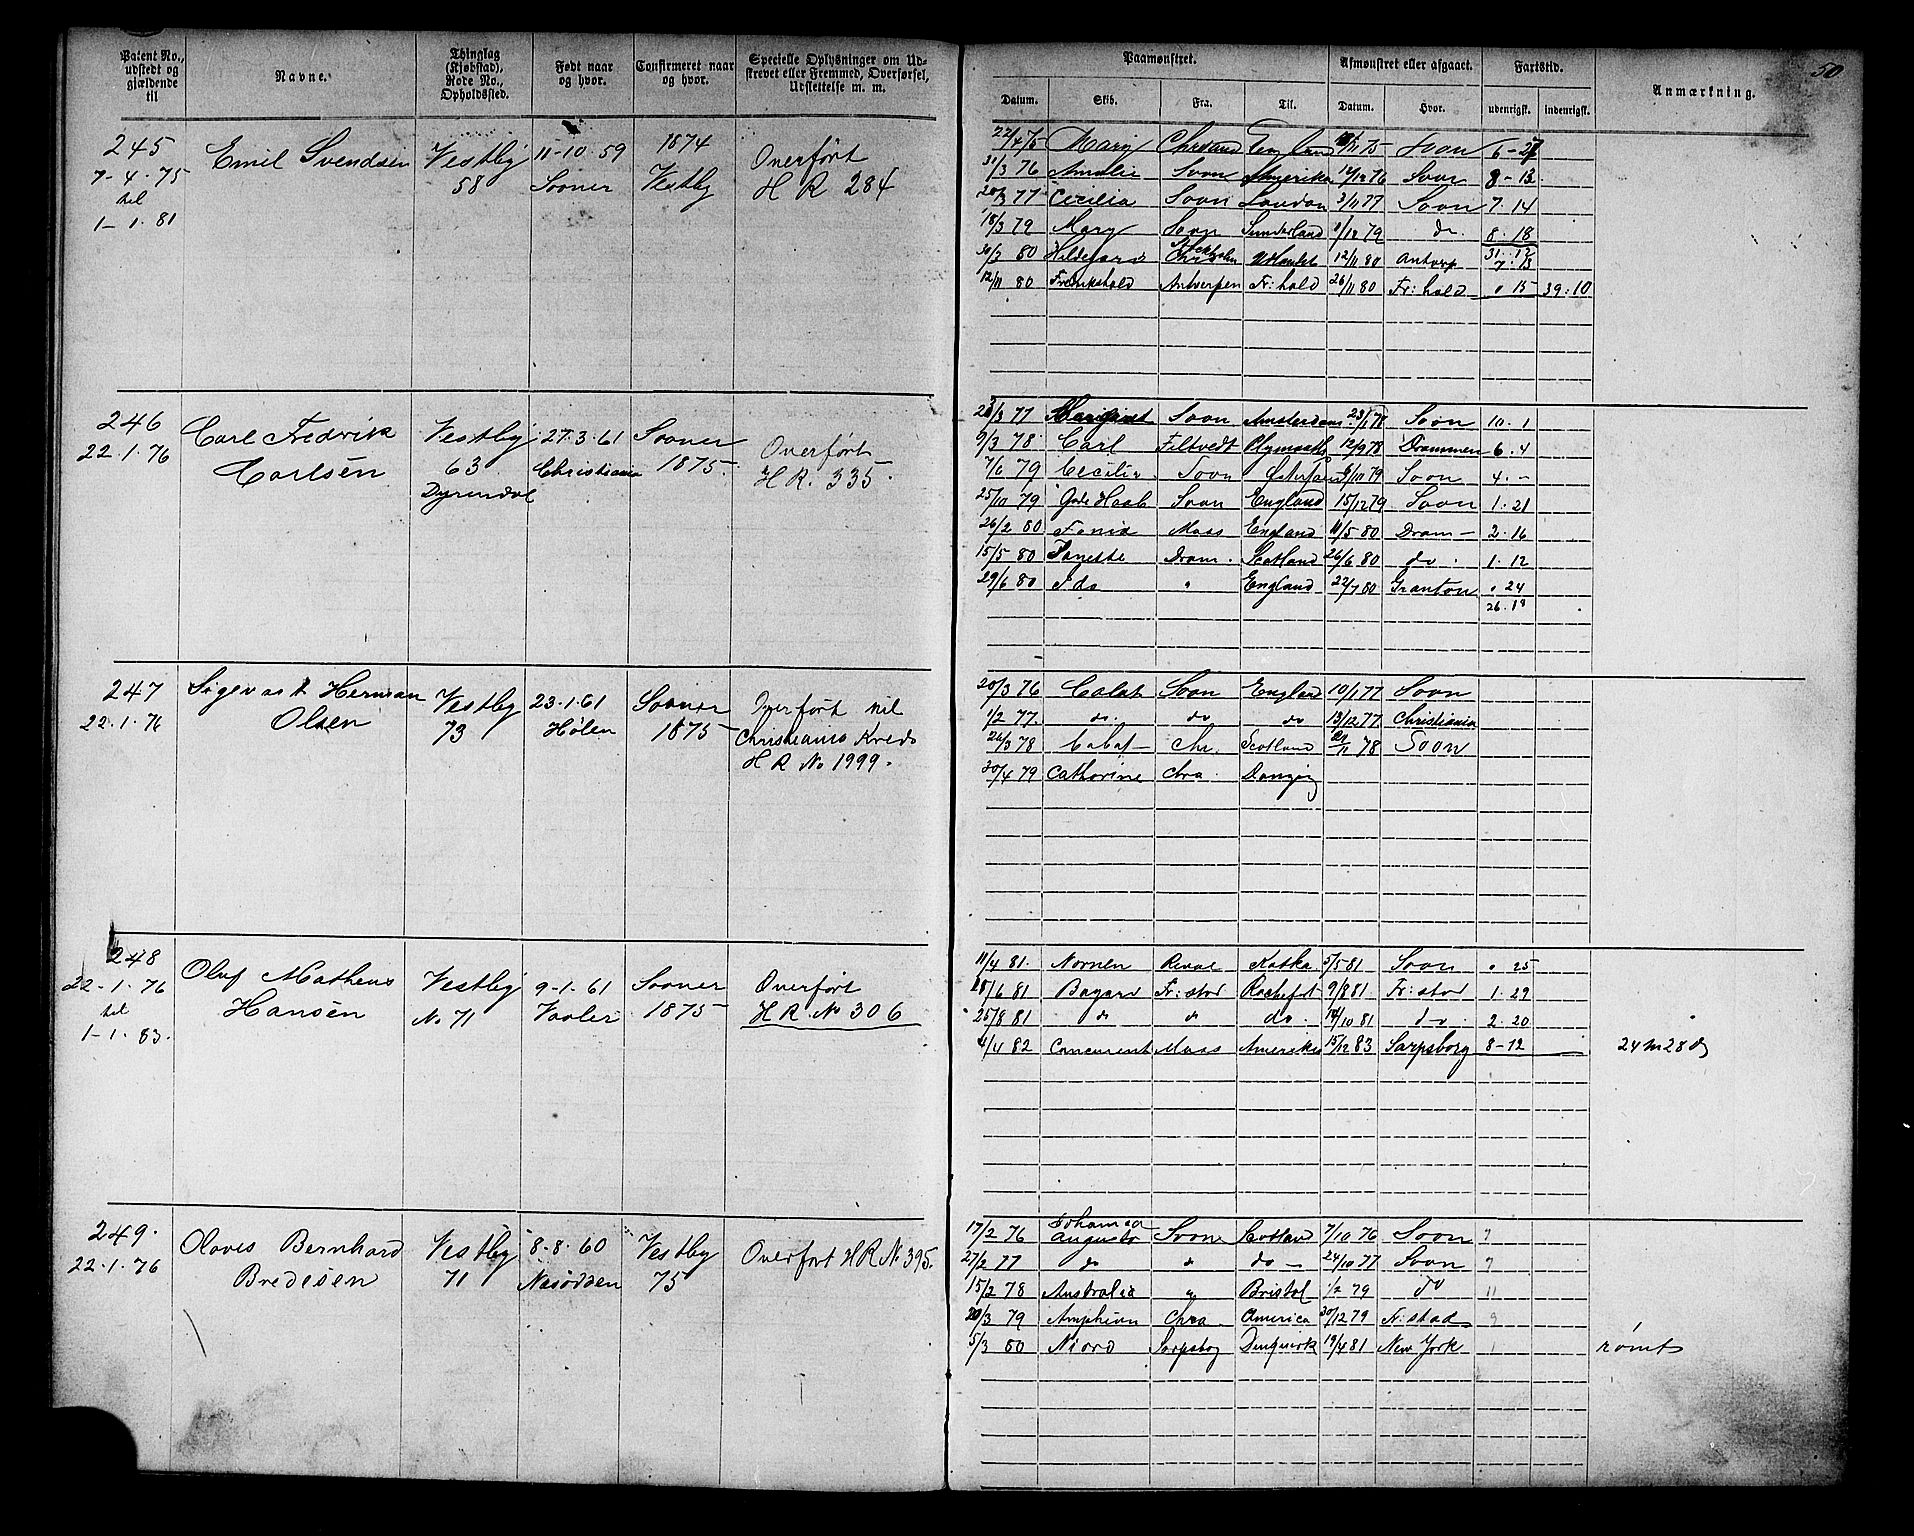 50
Patent No., udstedt og gjældende til
Navne.
Thinglag (Kjøbstad), Rode No., Opholdssted.
Født naar og hvor.
Confirmeret naar og hvor.
Specielle Oplysninger om Udskrevet eller Fremmed, Overførsel, Udslettelse m. m.
Paamønstret.
Afmønstret eller afgaaet.
Fartstid.
Anmærkning.
Datum. Skib. Fra. Til. Datum. Hvor. udenrigsk. indenrigsk.
245 Emil Svendsen Vestby 11-10-59 1874 Overført
7-4-75 58 Sooner Vestby H R 284
til
1-1-81
22/4 75 Mary England 75 Soon
31/3 76 Amalie Soon Amerika 14/12 76 Soon 8-13
77 Cecilia Soon London 3/11 77 Soon 7.14
18/3 79 Mary Soon Sunderland 1/12 79 do. 8.18
31.12
30/3 80 Hildegard 12/11 80 Antvp 7.13
12/11 80 Fredrikshald Antverpen Fr: hald 26/11 80 Fr: hald " 15 39:10
246 Carl Fredrik Vestby 27-3-61 Sooner Overført
22.1.76 Carlsén 63 Christiania 1875. H R. 335.
Dyrendal
77 Soon Amsterdam 23/1 78 Soon 10.1
9/3 78 Carl Filtvedt Plymouth 12/9 78 Drammen 6.4
7/6 79 Cecilie Soon 79 Soon 4.-
25/10 79 Gode Haab Soon England 15/12 79 Soon 1.21
26/2 80 Fania Moss England 11/5 80 Dram- 2.16
15/5 80 Janette Dram. Skotland 26/6 80 do. 1.12
29/6 80 Ida " England 22/7 80 Granton " 24
26.18
247 Sigevart Herman Vestby 23.1.61 Sooner Overført til
22.1.76 Olsen 73 Hølen 1875 Christiania Kreds
H R No 1999.
20/3 76 Soon England 10/1 77 Soon
1/2 77. do. do do 13/12 77 Christiania
26/3 78 Chr. Scotland 78 Soon
30/4 79 Cathorine Chra. Danzig
248 Oluf Matheus Vestby 9-1.61 Sooner Overført
22-1.76 Hansén No 71 Vaaler 1875 H R. No 306
til
1-1.83.
11/4 81. Nornen Reval Kotka 5/5 81 Soon " 25
18/6 81 Fr: stad Rochefort 9/8 81. Fr: stad 1.29
25/8 81 do " do. 14/10 81 do. 2.20
4/4 82 Concurrent Moss Amerika 15/12 83 Sarpsborg 8-12 24 m 28 dg
249. Olaves Bernhard Vestby 8-8-60 Vestby Overfort H R No 395.
22.1.76 Bredesen 71 Næsodden 75
Johanna
17/2 76 Augusta Soone 7/10 76 Soon 7
27/2 77 do " do - 24/10 77 Soon 7
15/2 78 Australia " Bristol 1/2 79 do 11
20/3 79 Amphion Chra. America 30/12 79 Fr: stad 9
5/3 80 Niord Sarpsbog Dunquirk 19/4 81 New York rømt